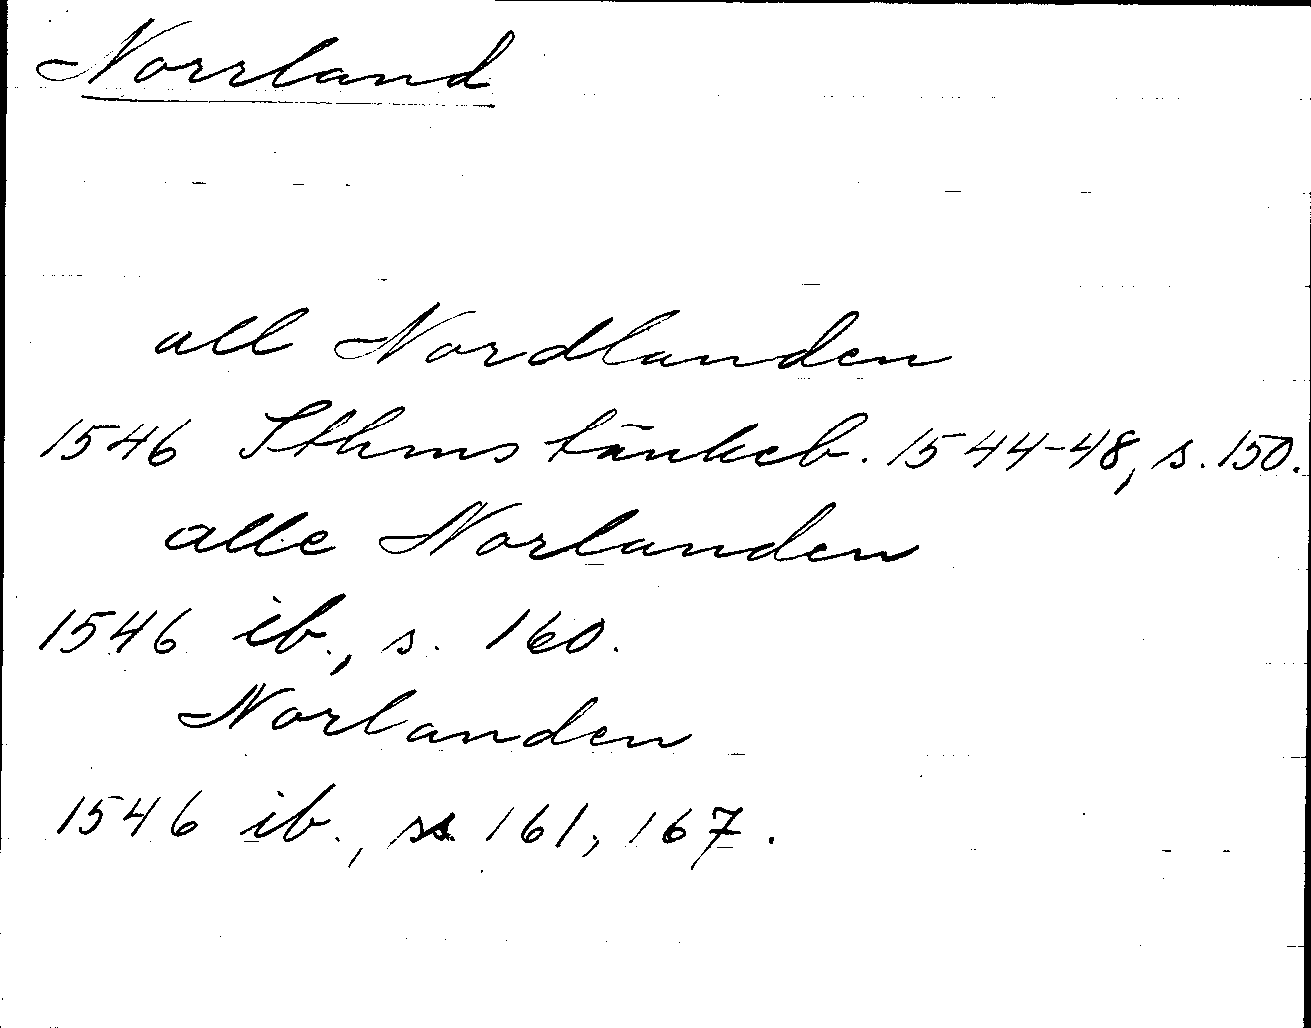 Norrland
all Nordlanden
1546 Sthms tänkeb. 1544-48, s. 150.
alle Norlanden
1546 ib., s. 160.
Norlanden
1546 ib., ss 161, 167.